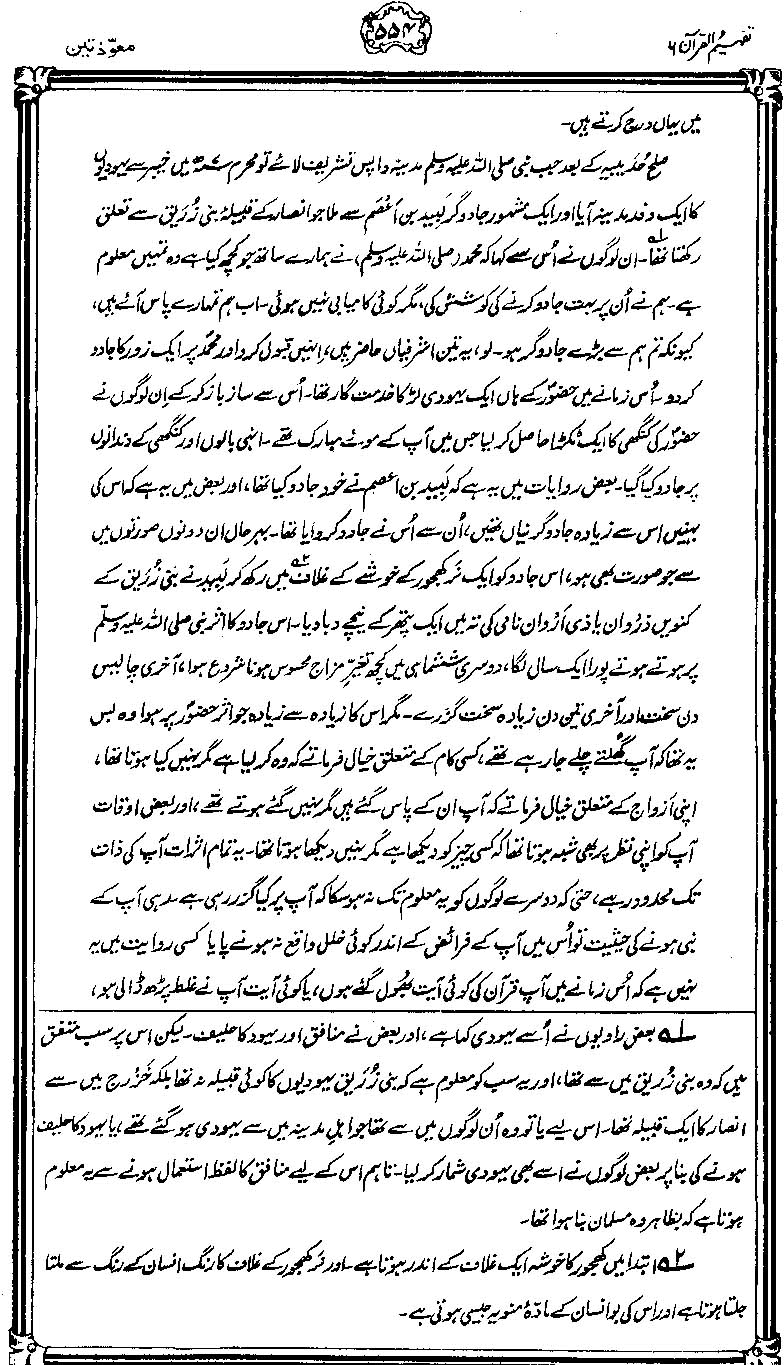 تفہیم القرآن ۶
۵۵۴
معوّذتین
میں یہاں درج کرتے ہیں۔
صلح حُدَیبیہ کے بعد جب نبی صلی اللہ علیہ وسلم مدینہ واپس تشریف لائے تو محرم ۷ھ میں خیبر سے یہودیوں
کا ایک وفد مدینہ آیا اور ایک مشہور جادوگر لَبِید بن اَعْصَم سے ملا جو انصار کے قبیلۂ بنی زُرَیق سے تعلق
رکھتا تھا۱ـ۔ ان لوگوں نے اُس سے کہا کہ محمدؐ (صلی اللہ علیہ وسلم) نے ہمارے ساتھ جو کچھ کیا ہے وہ تمہیں معلوم
ہے۔ ہم نے اُن پر بہت جادو کرنے کی کوشش کی، مگر کوئی کامیابی نہیں ہوئی۔ اب ہم تمہارے پاس آئے ہیں،
کیونکہ تم ہم سے بڑے جادوگر ہو۔ لو، یہ تین اشرفیاں حاضر ہیں، انہیں قبول کرو اور محمدؐ پر ایک زور کا جادو
کر دو۔ اُس زمانے میں حضورؐ کے ہاں ایک یہودی لڑکا خدمت گار تھا۔ اُس سے ساز باز کر کے اِن لوگوں نے
حضورؐ کی کنگھی کا ایک ٹکڑا حاصل کر لیا جس میں آپ کے موئے مبارک تھے۔ انہی بالوں اور کنگھی کے دندانوں
پر جادو کیا گیا۔ بعض روایات میں یہ ہے کہ لَبِید بن اعصم نے خود جادو کیا تھا، اور بعض میں یہ ہے کہ اس کی
بہنیں اس سے زیادہ جادوگرنیاں تھیں، اُن سے اُس نے جادو کروایا تھا۔ بہرحال ان دونوں صورتوں میں
سے جو صورت بھی ہو، اس جادو کو ایک نر کھجور کے خوشے کے غلاف۲ـ میں رکھ کر لَبِید نے بنی زُرَیق کے
کنویں ذَرْوان یا ذی اَرْوان نامی کی تہ میں ایک پتھر کے نیچے دبا دیا۔ اس جادو کا اثر نبی صلی اللہ علیہ وسلم
پر ہوتے ہوتے پورا ایک سال لگا، دوسری ششماہی میں کچھ تغیرِ مزاج محسوس ہونا شروع ہوا، آخری چالیس
دن سخت اور آخری تین دن زیادہ سخت گزرے۔ مگر اس کا زیادہ سے زیادہ جو اثر حضورؐ پر ہوا وہ بس
یہ تھا کہ آپ گھُلتے چلے جا رہے تھے، کسی کام کے متعلق خیال فرماتے کہ وہ کر لیا ہے مگر نہیں کیا ہوتا تھا،
اپنی اَزواج کے متعلق خیال فرماتے کہ آپ ان کے پاس گئے ہیں مگر نہیں گئے ہوتے تھے، اور بعض اوقات
آپ کو اپنی نظر پر بھی شبہ ہوتا تھا کہ کسی چیز کو دیکھا ہے مگر نہیں دیکھا ہوتا تھا۔ یہ تمام اثرات آپ کی ذات
تک محدود رہے، حتیٰ کہ دوسرے لوگوں کو یہ معلوم تک نہ ہو سکا کہ آپ پر کیا گزر رہی ہے۔ رہی آپ کے
نبی ہونے کی حیثیت تو اُس میں آپ کے فرائض کے اندر کوئی خلل واقع نہ ہونے پایا۔ کسی روایت میں یہ
نہیں ہے کہ اُس زمانے میں آپ قرآن کی کوئی آیت بھول گئے ہوں، یا کوئی آیت آپ نے غلط پڑھ ڈالی ہو،
۱ـ بعض راویوں نے اُسے یہودی کہا ہے، اور بعض نے منافق اور یہود کا حلیف۔ لیکن اس پر سب متفق
ہیں کہ وہ بنی زُرَیق میں سے تھا، اور یہ سب کو معلوم ہے کہ بنی زُرَیق یہودیوں کا کوئی قبیلہ نہ تھا بلکہ خَزْرج میں سے
انصار کا ایک قبیلہ تھا۔ اس لیے یا تو وہ اُن لوگوں میں سے تھا جو اہلِ مدینہ میں سے یہودی ہو گئے تھے، یا یہود کا حلیف
ہونے کی بنا پر بعض لوگوں نے اسے بھی یہودی شمار کر لیا۔ تاہم اس کے لیے منافق کا لفظ استعمال ہونے سے یہ معلوم
ہوتا ہے کہ بظاہر وہ مسلمان بنا ہوا تھا۔
۲ـ ابتدا میں کھجور کا خوشہ ایک غلاف کے اندر ہوتا ہے۔ اور نر کھجور کے غلاف کا رنگ انسان کے رنگ سے ملتا
جلتا ہوتا ہے اور اس کی بو انسان کے مادّۂ منویہ جیسی ہوتی ہے۔